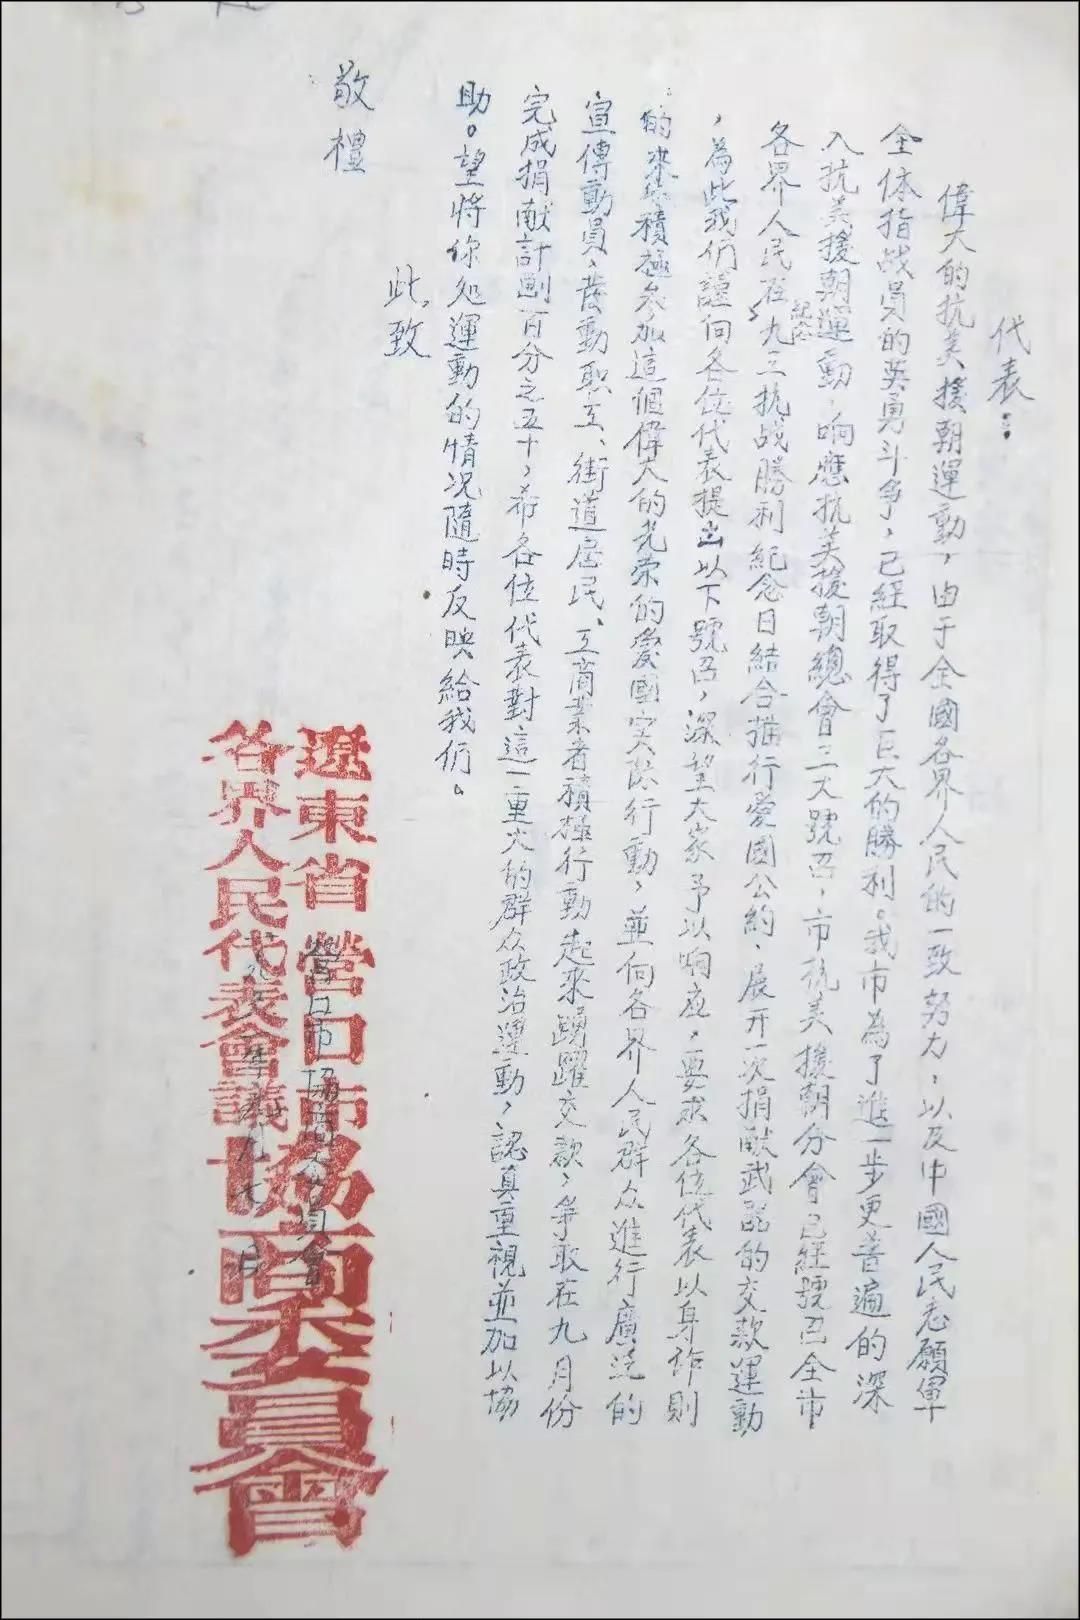 代表：
偉大的抗美援朝運動，由于全國各界人民的一致努力，以及中國人民志願軍
全体指战員的英勇斗争，已經取得了巨大的勝利。我市為了進一步更普遍的深
入抗美援朝運動，响應抗美援朝總會三大號召，市抗美援朝分會已經號召全市
各界人民在紀念九三抗战勝利紀念日結合推行愛國公約、展开一次捐献武器的交款運動
，為此我们謹向各位代表提出以下號召，深望大家予以响应，要求各位代表以身作則
的來積極参加這個偉大的光荣的愛國实际行動，並向各界人民群众進行廣泛的
宣傳動員，發動职工、街道居民、工商業者積極行動起來踴躍交款，争取在九月份
完成捐献計劃百分之五十，希各位代表對這一重大的群众政治運動，認真重視並加以協
助。望將你处運動的情况隨時反映給我们。
此致
敬禮
營口市協商委員會
月
遼東省營口市
各界人民代表會議
協商委員會